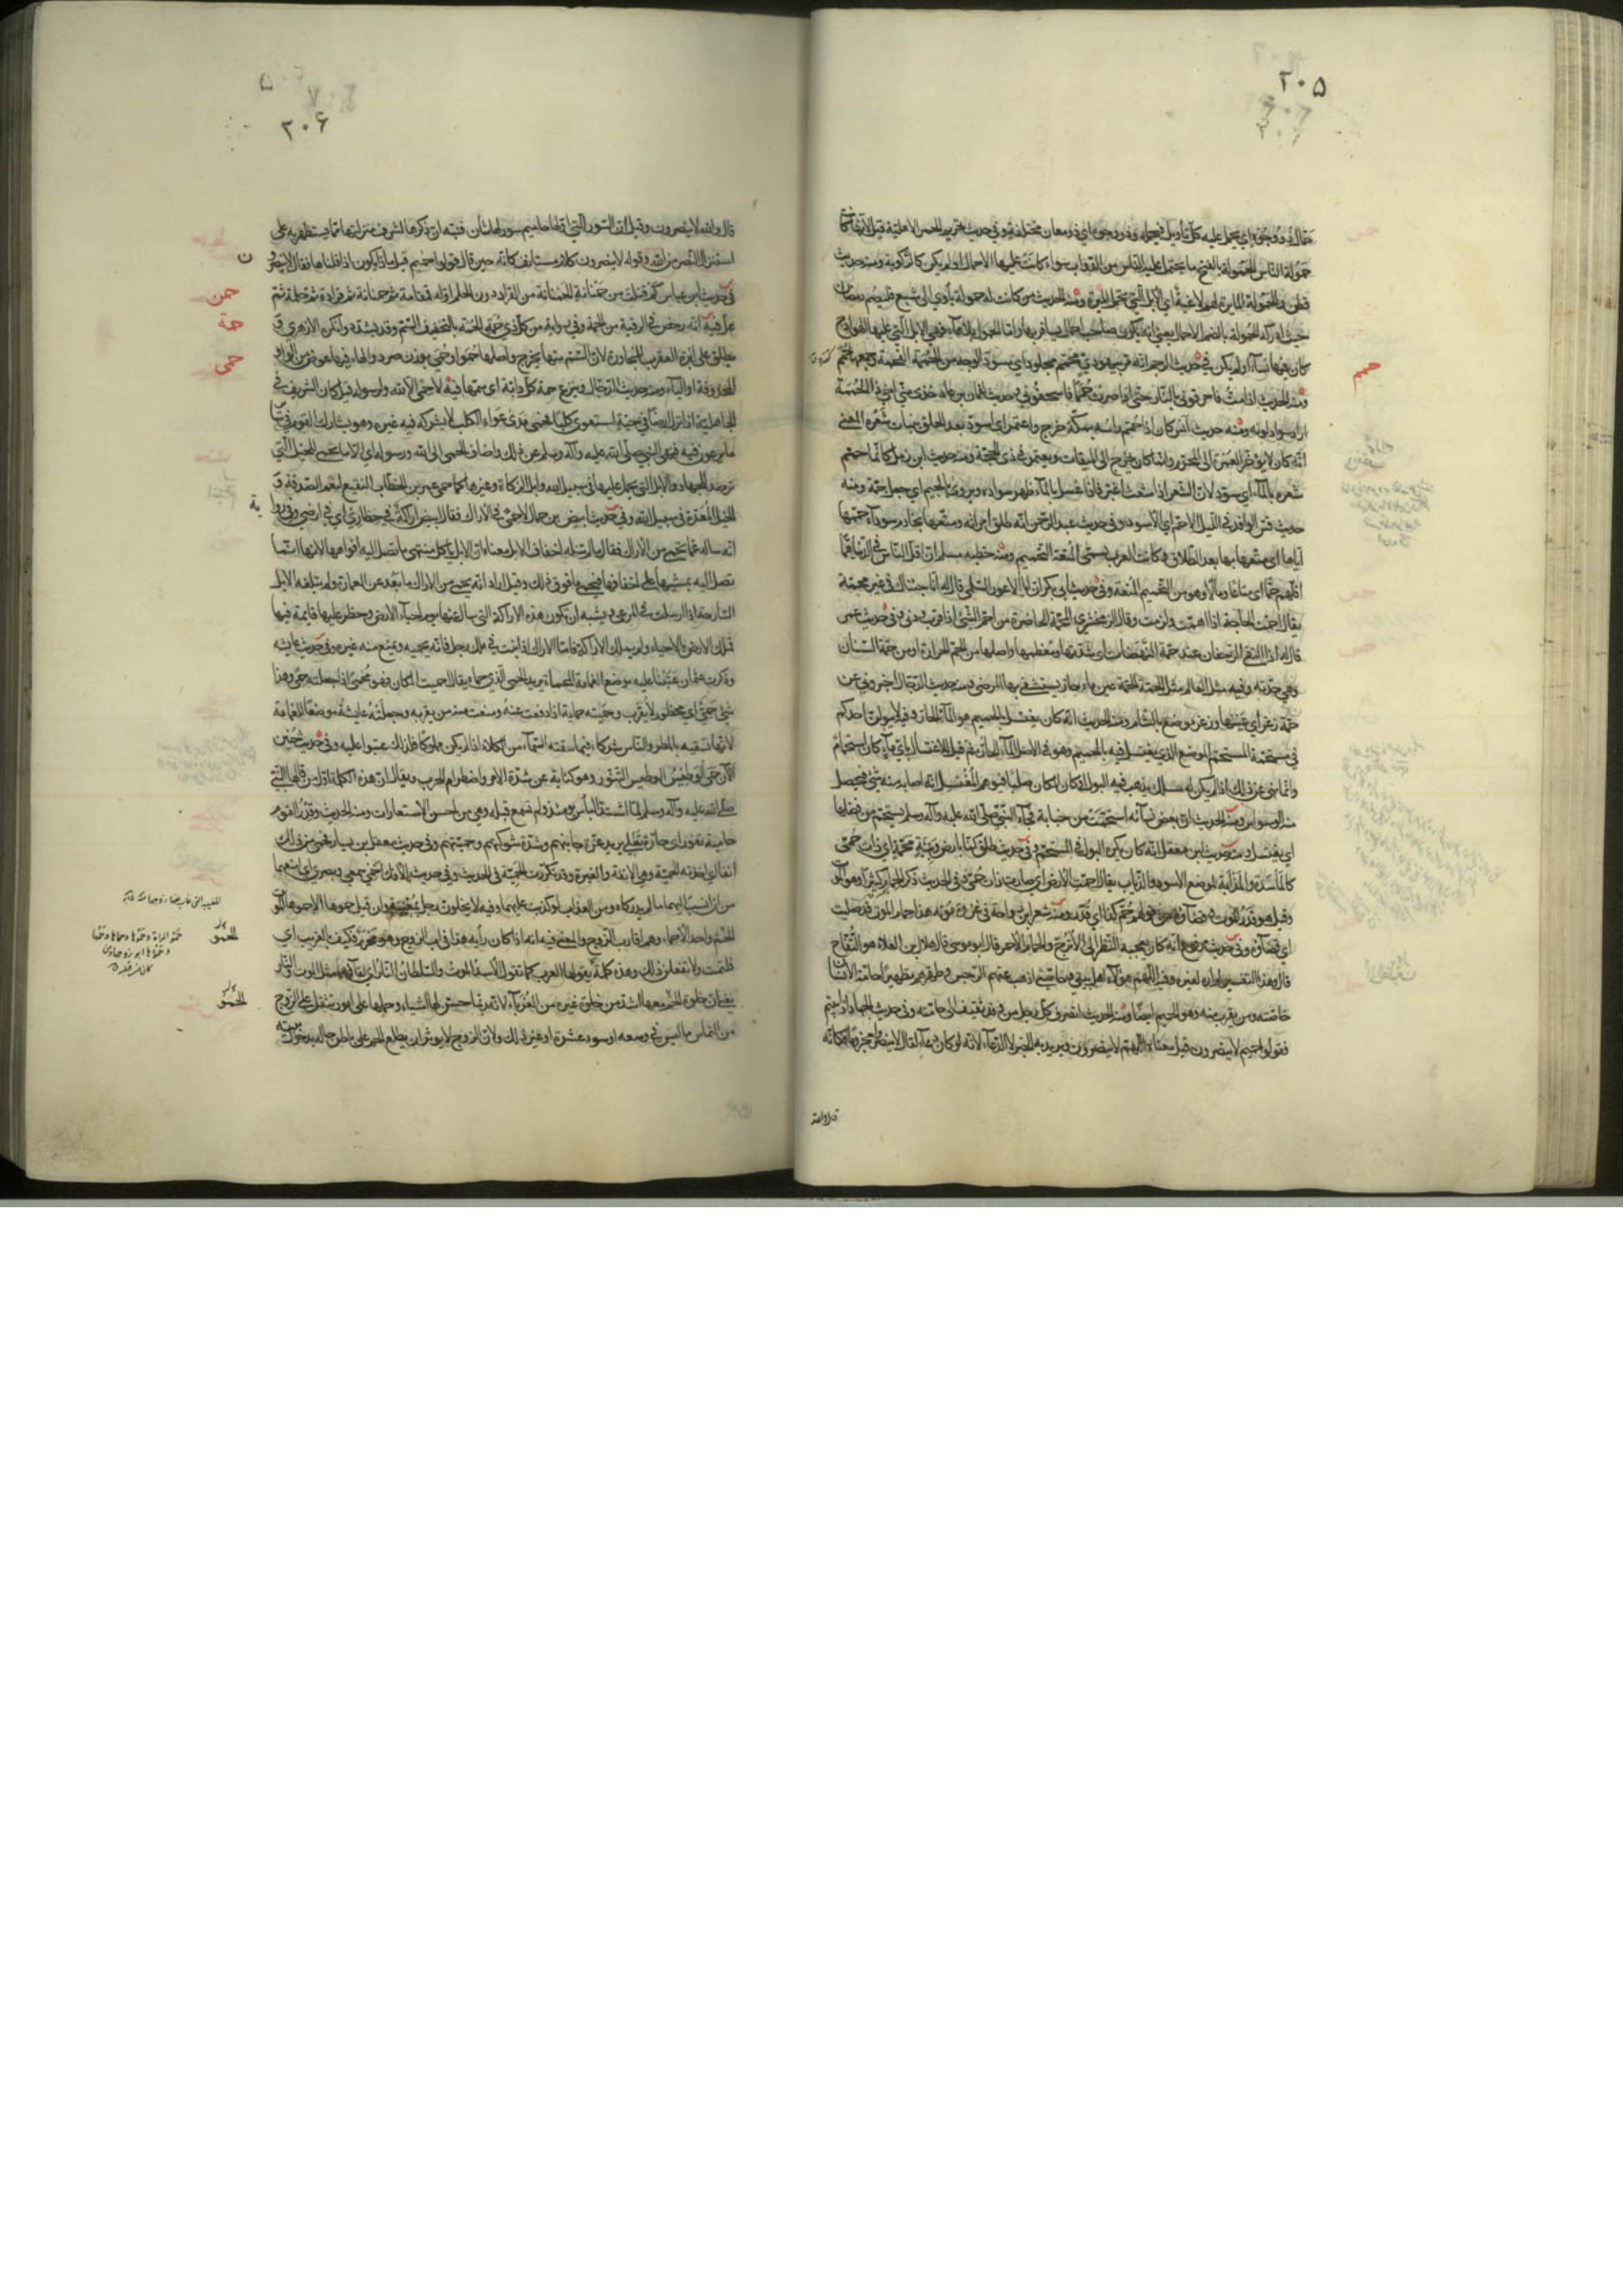 ٢٠٥
حمال ذو وجوه اي يحمل عليه كل تأويل فيحتمله وذو وجوه اي ذو معان مختلفة وفي حديث تحريم الحمر الاهلية قيل لانها كانت
حمولة الناس الحمولة بالفتح ما يحتمل عليه الناس من الدواب سواء كانت عليها الاحمال او لم يكن كالركوبة ومنه حديث
قطن والحمولة المايرة لهم لاغية اي الابل التي تحمل الميرة ومنه الحديث من كانت له حمولة يأوي الى شبع فليصم رمضان
حيث ادركه الحمولة بالضم الاحمال يعني انه يكون صاحب احمال يسافر بها واما الحمول بلا هاء فهي الابل التي عليها الهوادج
كان فيها نساء او لم يكن في حديث الرجم انه مر بيهودي محمم مجلود اي مسود الوجه من الحممة الفحمة وجمعها حمم
حمم
ومنه الحديث اذا مت فاحرقوني بالنار حتى اذا صرت حمما فاسحقوني وحديث لقمان بن عاد خذي مني اخي ذا الحممة
اراد سواد لونه ومنه حديث انس كان اذا حمم رأسه بمكة خرج واعتمر اي اسود بعد الحلق بنبات شعره المعنى
انه كان لا يؤخر العمرة الى المحرم وانما كان يخرج الى الميقات ويعتمر في ذي الحجة ومنه حديث ابن زمل كانما حمم
شعره بالماء اي سود لان الشعر اذا شعث اغبر فاذا غسل بالماء ظهر سواده ويروى بالجيم اي جعل جمة ومنه
حديث قس الوافد في الليل الاحم اي الاسود وفي حديث عبد الرحمن انه طلق امرأته ومتعها بخادم سوداء حممها
اياها اي متعها بها بعد الطلاق وكانت العرب تسمي المتعة التحميم ومنه خطبه مسلم ان اقل الناس في الدنيا هما
اقلهم حما اي متاعا ومالا وهو من التحميم المتعة وفي حديث ابي بكر ان ابا الاعور السلمي قال له انا جئناك في غير محمة
يقال احمت الحاجة اذا اهمت ولزمت وقال الزمخشري المحمة الحاضرة من احم الشئ اذا قرب ودنى وفي حديث عمر
قال اذا التقى الزحفان عند حمة النهضات اي شدتها ومعظمها واصلها من الحم الحرارة او من حمة السنان
وهي حدته وفيه مثل العالم مثل الحمة الحمة عين ماء حار يستشفي بها المرضى ومنه حديث الدجال اخبروني عن
حمة زغر اي عينها وزغر موضع بالشام ومنه الحديث انه كان يغتسل بالحميم هو الماء الحار وفيه لا يبولن احدكم
في مستحمه المستحم الموضع الذي يغتسل فيه بالحميم وهو في الاصل الماء الحار ثم قيل للاغتسال باي ماء كان استحمام
وانما نهى عن ذلك اذا لم يكن له مسلك يذهب فيه البول او كان المكان صلبا فيوهم المغتسل انه اصابه منه شئ فيحصل
منه الوسواس ومنه الحديث ان بعض نسائه استحمت من جنابة فجاء النبي صلى الله عليه وآله وسلم يستحم من فضلها
اي يغتسل ومنه حديث ابن مغفل انه كان يكره البول في المستحم وفي حديث طلق كنا بارض وبيئة محمة اي ذات حمى
كالمأسدة والمذأبة لموضع الاسود والذئاب يقال احمت الارض اي صارت ذات حمى وفي الحديث ذكر الحمام كثيرا وهو الموت
وقيل هو قدر الموت وقضاؤه من قولهم حم كذا اي قدر ومنه شعر ابن رواحة في غزوة مؤتة هذا حمام الموت قد صليت
اي قضاؤه وفي حديث مرفوع انه كان يعجبه النظر الى الاترج والحمام الاحمر قال ابو موسى قال هلال بن العلاء هو التفاح
قال وهذا التفسير لم اره لغيره وفيه اللهم هؤلاء اهل بيتي وحامتي اذهب عنهم الرجس وطهرهم تطهيرا حامة الانسان
خاصته ومن يقرب منه وهو الحميم ايضا ومنه الحديث انصرف كل رجل من وفد ثقيف الى حامته وفي حديث الجهاد اذا بيتم
فقولوا حم لا ينصرون قيل معناه اللهم لا ينصرون ويريد به الخبر لا الدعاء لانه لو كان دعاء لقال لا ينصروا مجزوما فكانه
قال والله
٢٠٦
قال والله لا ينصرون وقيل ان السور التي اولها حاميم سور لها شأن فنبه ان ذكرها لشرف منزلتها مما يستظهر به على
استنزال النصر من الله وقوله لا ينصرون كلام مستانف كانه حين قال قولوا حم قيل ماذا يكون اذا قلناها فقال لا ينصرون
حمن
في حديث ابن عباس كم قتلت من حمنانة الحمنانة من القراد دون الحلم اوله قمقامة ثم حمنانة ثم قراد ثم حلمة ثم
حمة
عل فيه انه رخص في الرقية من الحمة وفي رواية من كل ذي حمة الحمة بالتخفيف السم وقد يشدد وانكره الازهري و
يطلق على ابرة العقرب للمجاورة لان السم منها يخرج واصلها حمو او حمي بوزن صرد والهاء فيها عوض من الواو
حمى
المحذوفة او الياء ومنه حديث الدجال وتنزع حمة كل دابة اي سمها فيه لا حمى الا لله ولرسوله قيل كان الشريف في
الجاهلية اذا نزل ارضا في حيه استعوى كلبا فحمى مدى عواء الكلب لا يشركه فيه غيره وهو يشارك القوم في سائر
ما يرعون فيه فنهى النبي صلى الله عليه وآله وسلم عن ذلك واضاف الحمى الى الله ورسوله اي الا ما يحمى للخيل التي
ترصد للجهاد والابل التي يحمل عليها في سبيل الله وابل الزكاة وغيرها كما حمى عمر بن الخطاب النقيع لنعم الصدقة و
الخيل المعدة في سبيل الله وفي حديث ابيض بن حمال لا حمى في الاراك فقال ابيض اراكة في حظاري اي في ارضي وفي رواية
انه ساله عما يحمى من الاراك فقال ما لم تنله اخفاف الابل معناه ان الابل تاكل منتهى ما تصل اليه افواهها لانها انما
تصل اليه بمشيها على اخفافها فيحمى ما فوق ذلك وقيل اراد انه يحمى من الاراك ما بعد عن العمارة ولم تبلغه الابل
السارحة اذا ارسلت في المرعى ويشبه ان تكون هذه الاراكة التي سال عنها يوم احياء الارض وحظر عليها قايمة فيها
فملك الارض بالاحياء ولم يملك الاراكة فاما الاراك اذا نبت في ملك رجل فانه يحميه ويمنع منه غيره وفي حديث عايشة
وذكرت عثمان عتبنا عليه موضع الغمامة المحماة تريد الحمى الذي حماه يقال احميت المكان فهو محمى اذا جعلته حمى وهذا
شئ حمى اي محظور لا يقرب وحميته حماية اذا دفعت عنه ومنعت منه من يقربه وجعلته عايشة موضعا للغمامة
لانها تسقيه بالمطر والناس شركاء فيما سقته السماء من الكلاء اذا لم يكن مملوكا فلذلك عتبوا عليه وفي حديث حنين
الآن حمى الوطيس الوطيس التنور وهو كناية عن شدة الامر واضطرام الحرب ويقال ان هذه الكلمة اول من قالها النبي
صلى الله عليه وآله وسلم لما اشتد البأس يومئذ ولم تسمع قبله وهي من احسن الاستعارات ومنه الحديث وقدر القوم
حامية تفور اي حارة تغلي يريد عزة جانبهم وشدة شوكتهم وحميتهم وفي حديث معقل بن يسار فحمى من ذلك
انفا اي اخذته الحمية وهي الانفة والغيرة وقد تكررت الحمية في الحديث وفي حديث الافك احمي سمعي وبصري اي امنعهما
من ان انسب اليهما ما لم يدركاه ومن العذاب لو كذبت عليهما وفيه لا يخلون رجل بمغيبة وان قيل حموها الا حموها الموت
الحمو
الحم واحد الاحماء وهم اقارب الزوج والمعنى فيه انه اذا كان رأيه هذا في اب الزوج وهو محرم فكيف بالغريب اي
فلتمت ولا تفعلن ذلك وهذه كلمة يقولها العرب كما تقول الاسد الموت والسلطان النار اي لقاؤهما مثل الموت والنار
الحمو
يعني ان خلوة الحم معها اشد من خلوة غيره من الغرباء لانه ربما حسن لها اشياء وحملها على امور تثقل على الزوج
من التماس ما ليس في وسعه او سوء عشرة او غير ذلك ولان الزوج لا يؤثر ان يطلع الحم على باطن حاله بدخول بيته